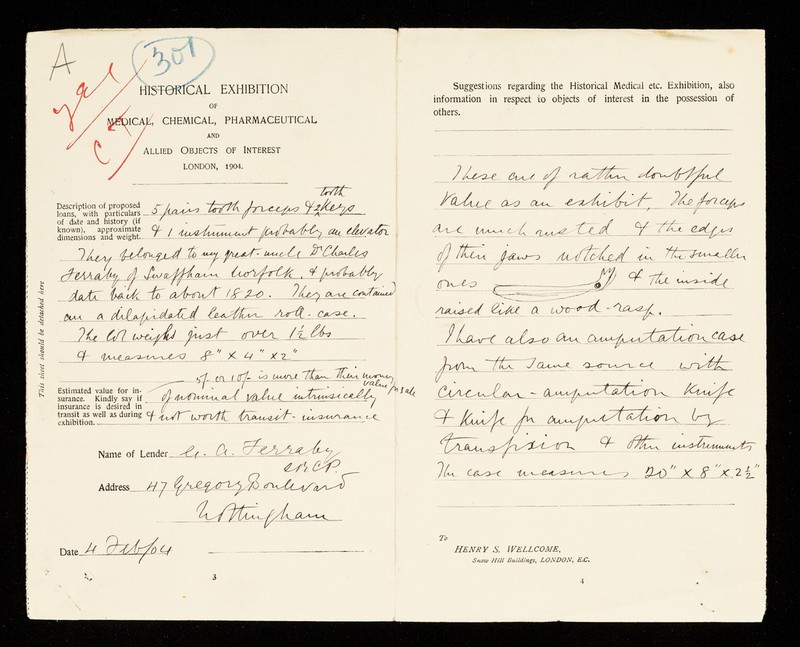 A
301
HISTORICAL EXHIBITION
OF
MEDICAL, CHEMICAL, PHARMACEUTICAL
AND
ALLIED OBJECTS OF INTEREST
LONDON, 1904.
This sheet should be detached here
Description of proposed
loans, with particulars
of date and history (if
known), approximate
dimensions and weight.
5 pairs tooth forceps & 2 tooth Keys
& 1 instrument probably an elevator
They belonged to my great-uncle Dr Charles
Ferraby of Swaffham Norfolk, & probably
date back to about 1820. They are contained
in a dilapidated leather roll-case.
The lot weighs just over 1½ lbs
& measures 8" x 4" x 2"
Estimated value for in-
surance. Kindly say if
insurance is desired in
transit as well as during
exhibition.
5/- or 10/- is more than their money
value for sale
of nominal value intrinsically
& not worth transit-insurance
Name of Lender G. A. Ferraby
Address 47 Gregory Boulevard
Nottingham
Date 4 Feb/04
3
Suggestions regarding the Historical Medical etc. Exhibition, also
information in respect to objects of interest in the possession of
others.
These are of rather doubtful
value as an exhibit. The forceps
are much rusted & the edges
of their jaws notched in the smaller
ones & the inside
raised like a wood-rasp.
I have also an amputation case
from the same source with
circular-amputation Knife
& Knife for amputation by
transfixion & other instruments
The case measures 20" x 8" x 2½"
To
HENRY S. WELLCOME,
Snow Hill Buildings, LONDON, E.C.
4